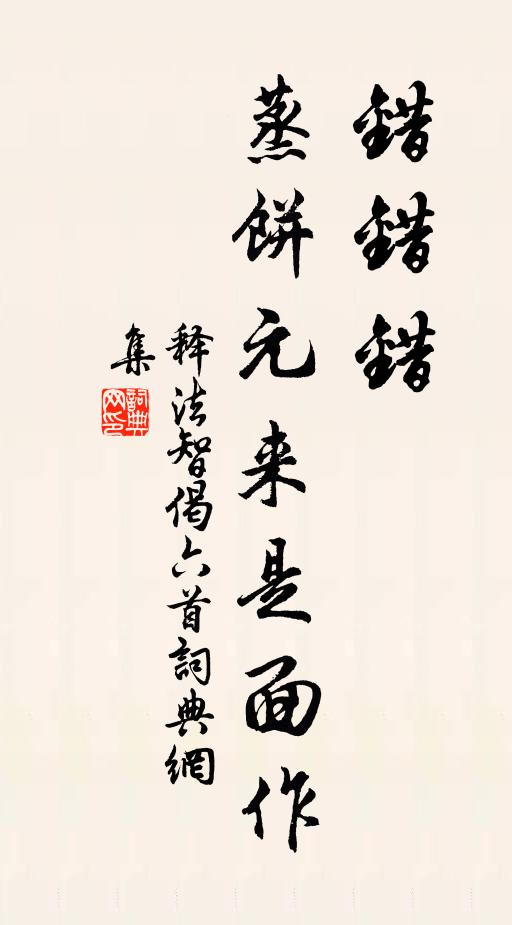 錯錯錯
蒸餅元来是面作
释法智偈六首詞典網
集
詞典网印